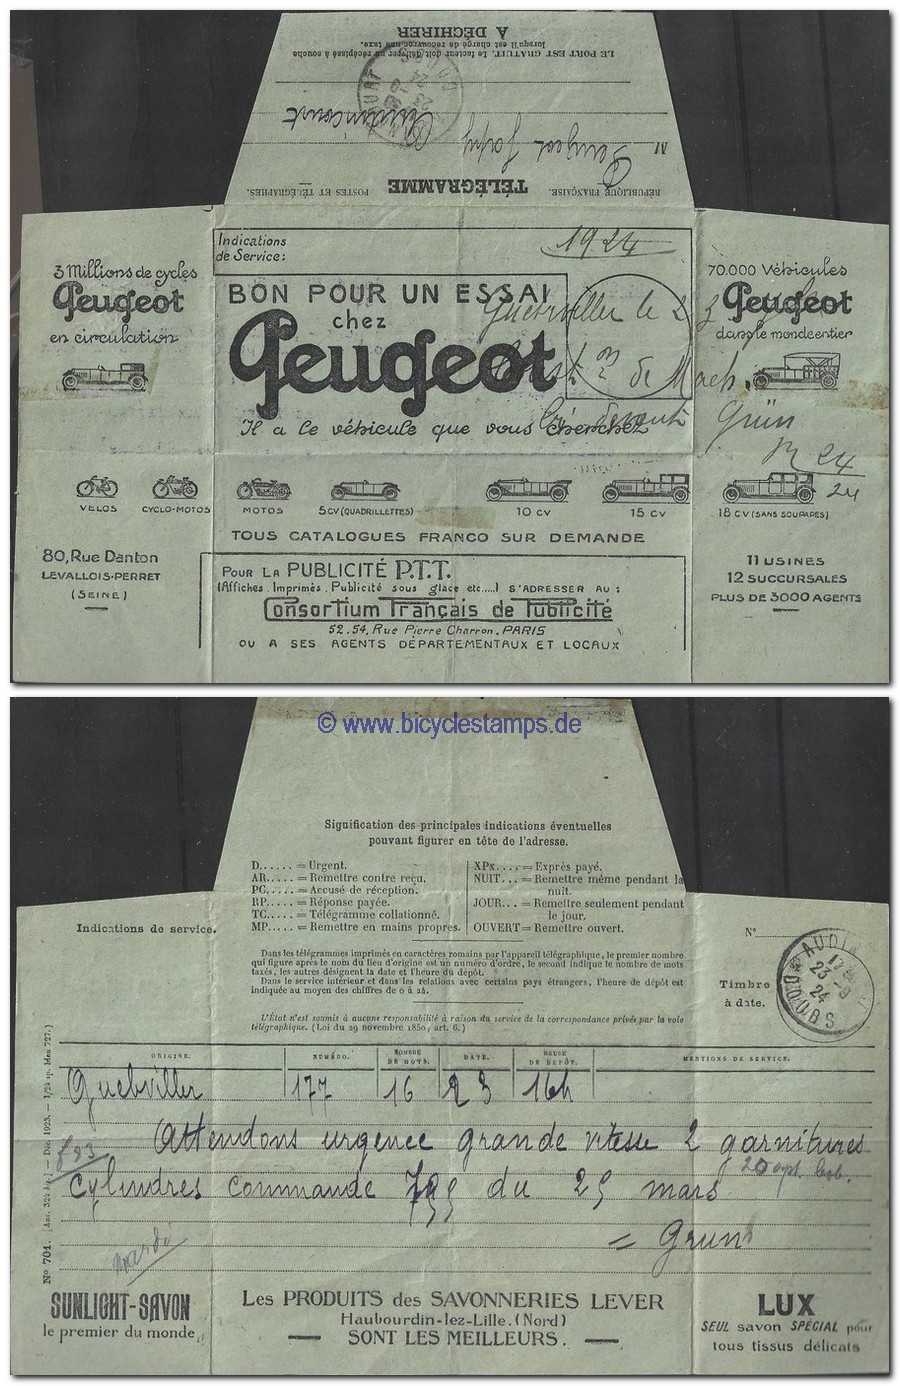 RÉPUBLIQUE FRANÇAISE. TÉLÉGRAMME POSTES ET TÉLÉGRAPHES.
M Peugeot Japy
Audincourt
LE PORT EST GRATUIT. Le facteur doit délivrer un récépissé à souche
lorsqu'il est chargé de recouvrer une taxe.
À DÉCHIRER
Indications
de Service:
1924
3 Millions de cycles
Peugeot
en circulation
BON POUR UN ESSAI
chez
Peugeot
Il a le véhicule que vous cherchez
Guebviller le 23
de Mach.
Grün
24
24
70.000 Véhicules
Peugeot
dans le monde entier
VELOS
CYCLO-MOTOS
MOTOS
5CV (QUADRILLETTES)
10 CV
15 CV
18 CV (SANS SOUPAPES)
TOUS CATALOGUES FRANCO SUR DEMANDE
80, Rue Danton
LEVALLOIS-PERRET
(SEINE)
POUR LA PUBLICITÉ P.T.T.
(Affiches, Imprimés, Publicité sous glace etc....) S'ADRESSER AU:
Consortium Français de Publicité
52.54, Rue Pierre Charron, PARIS
OU A SES AGENTS DÉPARTEMENTAUX ET LOCAUX
11 USINES
12 SUCCURSALES
PLUS DE 3000 AGENTS
© www.bicyclestamps.de
Signification des principales indications éventuelles
pouvant figurer en tête de l'adresse.
D..... = Urgent.
AR..... = Remettre contre reçu.
PC..... = Accusé de réception.
RP..... = Réponse payée.
TC..... = Télégramme collationné.
MP..... = Remettre en mains propres.
XPx.... = Exprès payé.
NUIT... = Remettre même pendant la
nuit.
JOUR... = Remettre seulement pendant
le jour.
OUVERT = Remettre ouvert.
Dans les télégrammes imprimés en caractères romains par l'appareil télégraphique, le premier nombre
qui figure après le nom du lieu d'origine est un numéro d'ordre, le second indique le nombre de mots
taxés, les autres désignent la date et l'heure du dépôt.
Dans le service intérieur et dans les relations avec certains pays étrangers, l'heure de dépôt est
indiquée au moyen des chiffres de 0 à 24.
L'État n'est soumis à aucune responsabilité à raison du service de la correspondance privée par la voie
télégraphique. (Loi du 29 novembre 1850, art. 6.)
Indications de service.
N°
Timbre
à date.
AUDIN
23-9
24
DOUBS
ORIGINE.
NUMÉRO.
NOMBRE
DE MOTS.
DATE.
HEURE
DE DÉPÔT.
MENTIONS DE SERVICE.
Guebviller 177 16 23 16h
Attendons urgence grande vitesse 2 garnitures
cylindres commande 795 du 25 mars
= Grun
N° 701.
SUNLIGHT-SAVON
le premier du monde
Les PRODUITS des SAVONNERIES LEVER
Haubourdin-lez-Lille. (Nord)
SONT LES MEILLEURS.
LUX
SEUL savon SPÉCIAL pour
tous tissus délicats